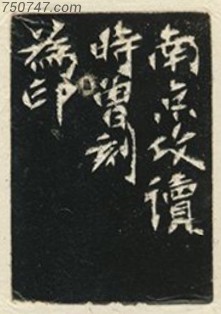 750747.com
南京攻讀
時曾刻
為印